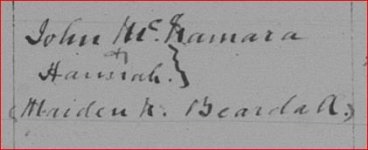 John McNamara
+
Hannah. }
(Maiden N. Beardall.)